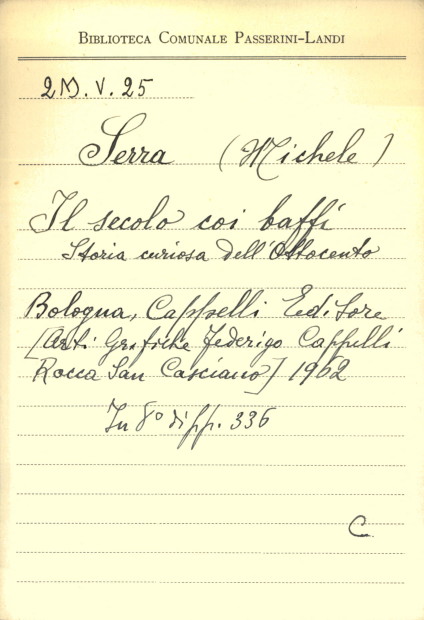 BIBLIOTECA COMUNALE PASSERINI-LANDI
2M.V.25
Serra (Michele)
Il secolo coi baffi
Storia curiosa dell'Ottocento
Bologna, Cappelli Editore
[Arti Grafiche Federigo Cappelli
Rocca San Casciano] 1962
In 8º di pp. 336
C